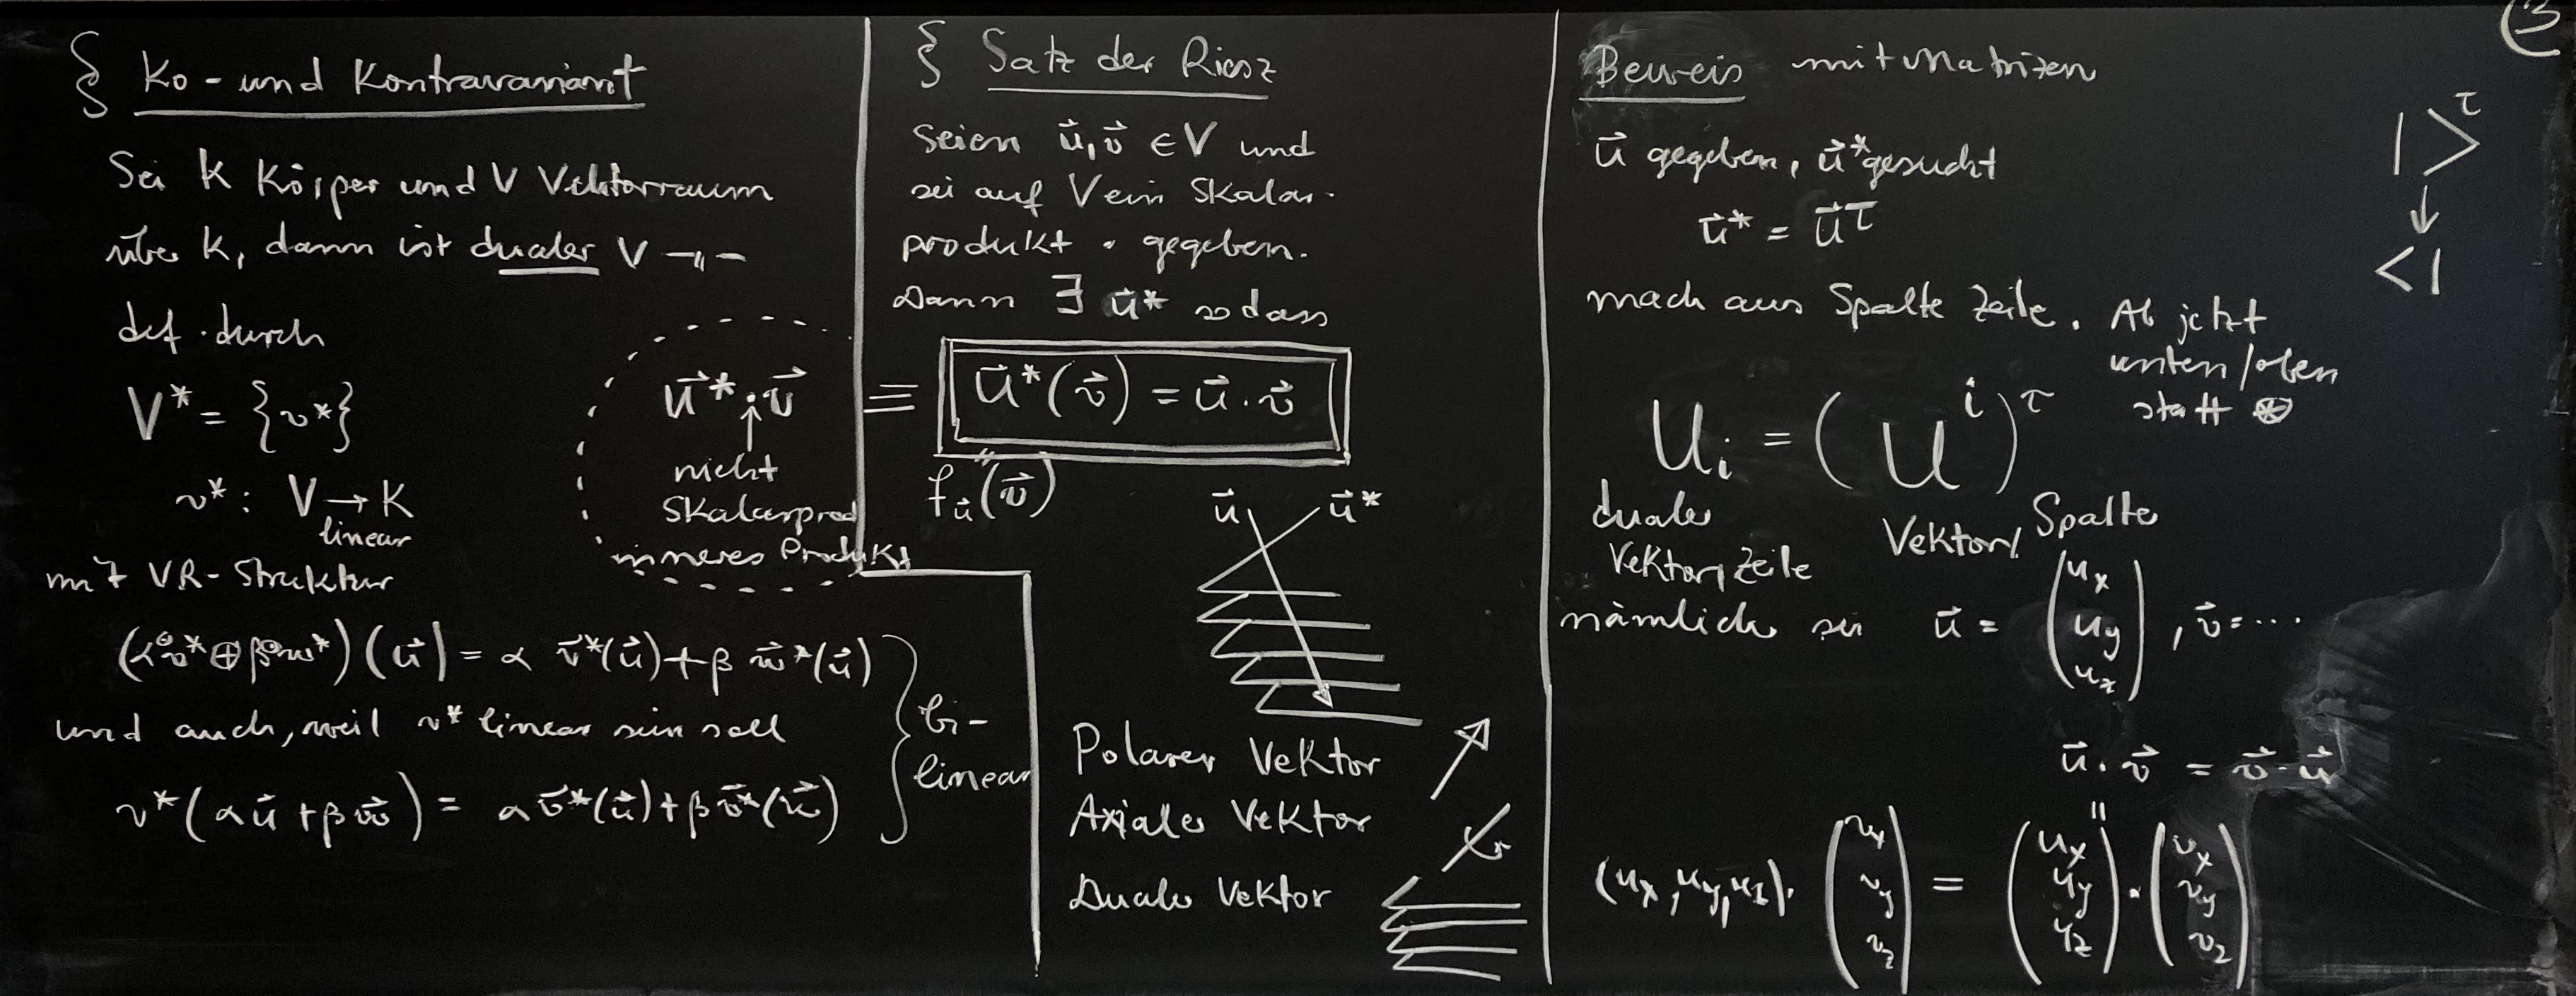 ③
§ Ko - und Kontravariant
Sei K Körper und V Vektorraum
über K, dann ist dualer V -〃-
def. durch
V* = {v*}
v* : V → K
linear
mit VR-Struktur
(α⊙v* ⊕ β⊙w*)(u⃗) = α v⃗*(u⃗) + β w⃗*(u⃗)
und auch, weil v* linear sein soll
v*(αu⃗ + βw⃗) = α v⃗*(u⃗) + β v⃗*(w⃗)
bi-
linear
u⃗* · v⃗
↑
nicht
Skalarprod
inneres Produkt
§ Satz der Riesz
seien u⃗, v⃗ ∈ V und
sei auf V ein Skalar-
produkt · gegeben.
Dann ∃ u⃗* sodass
≡ u⃗*(v⃗) = u⃗ · v⃗
"
f_u⃗(v⃗)
u⃗ u⃗*
Polarer Vektor
Axialer Vektor
Dualer Vektor
Beweis mit Matrizen
u⃗ gegeben, u⃗* gesucht
u⃗* = u⃗ᵀ
mach aus Spalte Zeile. Ab jetzt
unten/oben
statt ⊛
| >ᵀ
↓
< |
uᵢ = (uⁱ)ᵀ
dualer
Vektor, Zeile
Vektor, Spalte
nämlich sei u⃗ = (u_x u_y u_z), v⃗ = ...
u⃗ · v⃗ = v⃗ · u⃗
"
(u_x, u_y, u_z) · (v_x v_y v_z) = (u_x u_y u_z) · (v_x v_y v_z)